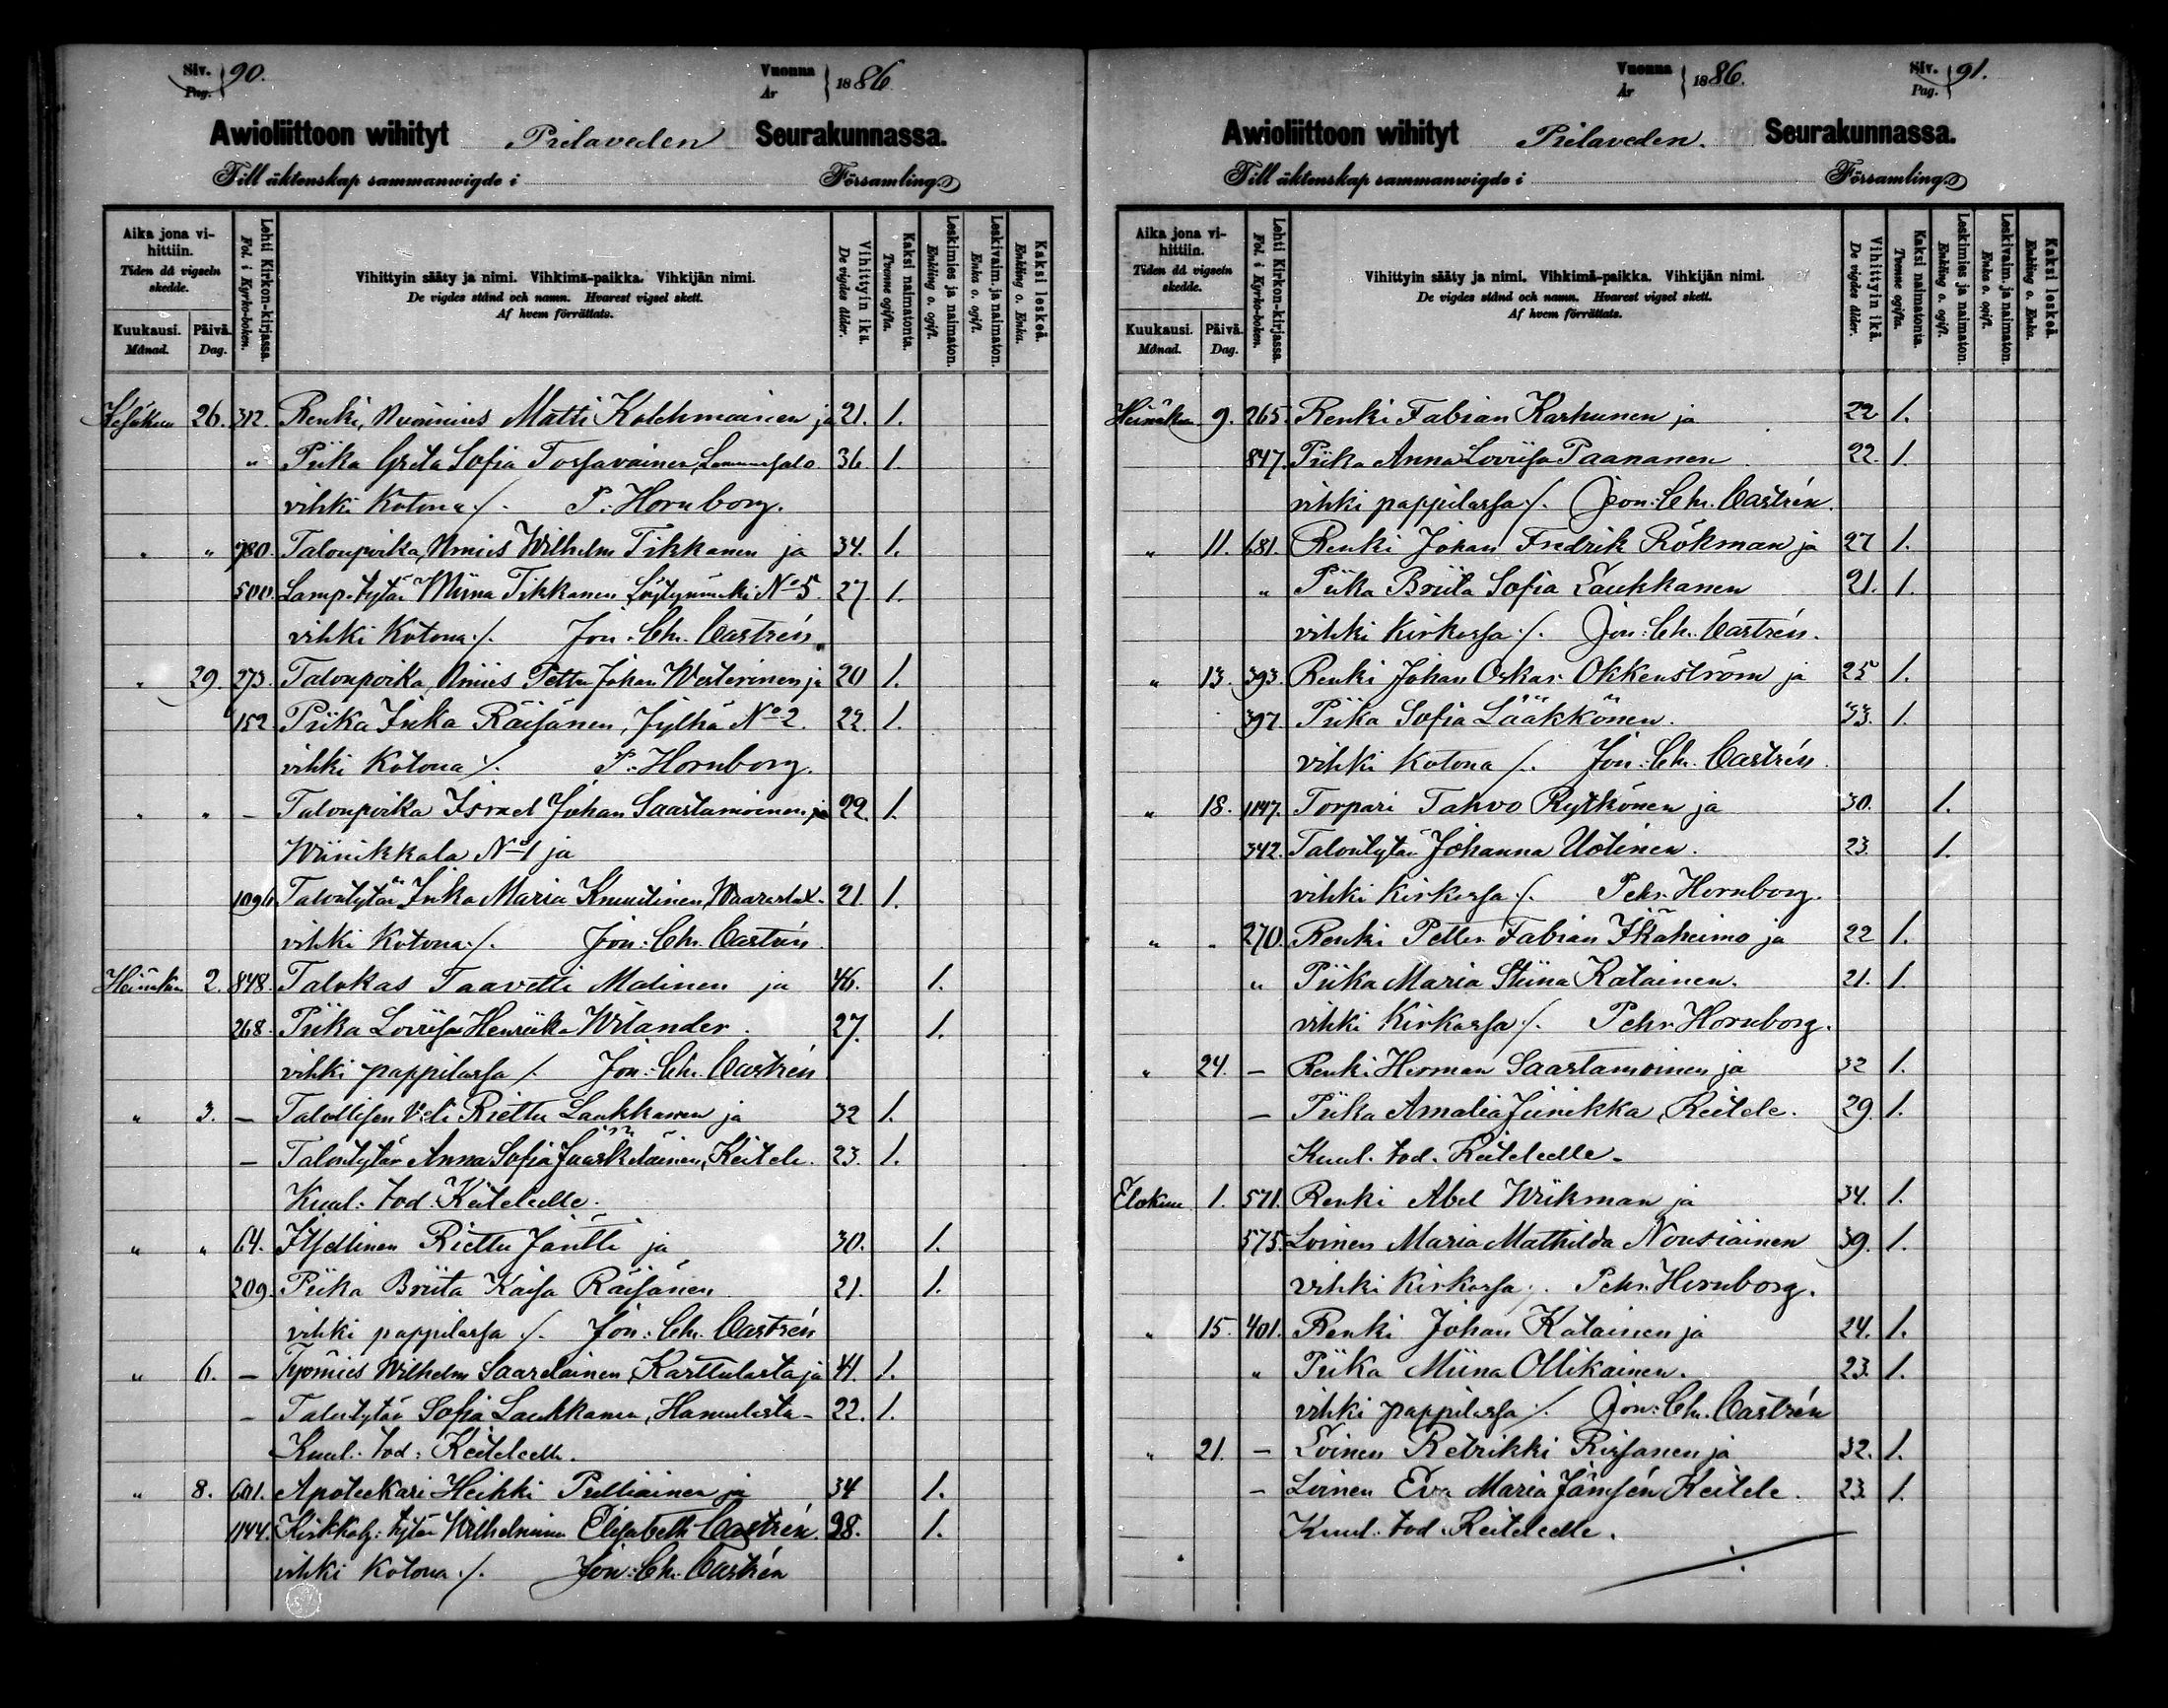 Siv. Pag. } 90.
Vuonna År } 1886
Awioliittoon wihityt Pielaveden Seurakunnassa.
Till äktenskap sammanwigde i Församling.
Aika jona vihittiin. Tiden då vigseln skedde.
Kuukausi. Månad.
Päivä. Dag.
Lehti Kirkon-kirjassa. Fol. i Kyrko-boken.
Vihittyin sääty ja nimi. Vihkimä-paikka. Vihkijän nimi.
De vigdes stånd och namn. Hvarest vigsel skett.
Af hvem förrättats.
Vihittyin ikä. De vigdes ålder.
Kaksi naimatonta. Tvenne ogifta.
Leskimies ja naimaton. Enkling o. ogift.
Leskivaim. ja naimaton. Enka o. ogift.
Kaksi leskeä. Enkling o. Enka.
Kesäkuu 26. 312. Renki, Matti Kolehmainen ja 21. 1.
" Piika Greta Sofia Tossavainen, Lammassalo 36. 1.
vihki Kotona ./. P. Hornborg.
" " 780. Talonpoika, Nmies Wilhelm Tikkanen ja 34. 1.
500. Lamp. tytär Miina Tikkanen No 5. 27. 1.
vihki Kotona ./. Jon. Chr. Castrén
" 29. 273. Talonpoika, Nmies Petter Johan Westerinen ja 20 1.
152 Piika Inka Räisänen, Jylhä No 2. 22. 1.
vihki Kotona ./. P. Hornborg.
" " - Talonpoika Israel Johan Saastamoinen ja 22. 1.
Wänikkala No 1 ja
1096 Talontytär Inka Maria Knuutinen, Waaraslat. 21. 1.
vihki Kotona ./. Jon. Chr. Castrén
Heinäkuu 2. 848. Talokas Taavetti Malinen ja 46. 1.
268. Piika Loviisa Henriika Wilander. 27. 1.
vihki pappilassa ./. Jon. Chr. Castrén
" 3. - Talollisen Veli Riettu Laukkanen ja 32 1.
- Talontytär Anna Sofia Jääskeläinen, Keitele. 23. 1.
Kuul. tod. Keiteleelle.
" " 64. Itsellinen Riettu Jäntti ja 30. 1.
209. Piika Briita Kaisa Räisänen 21. 1.
vihki pappilassa ./. Jon. Chr. Castrén
" 6. - Työmies Wilhelm Saarelainen, Karttulasta ja 41. 1.
- Talontytär Sofia Laukkanen, 22. 1.
Kuul. tod. Keiteleelle.
" 8. 601. Apoteekari Heikki Pulliainen ja 34 1.
1144. Kirkkoh. tytär Wilhelmiina Elisabeth Castrén. 28. 1.
vihki Kotona ./. Jon. Chr. Castrén
Vuonna År } 1886.
Siv. Pag. } 91.
Awioliittoon wihityt Pielaveden. Seurakunnassa.
Till äktenskap sammanwigde i Församling.
Aika jona vihittiin. Tiden då vigseln skedde.
Kuukausi. Månad.
Päivä. Dag.
Lehti Kirkon-kirjassa. Fol. i Kyrko-boken.
Vihittyin sääty ja nimi. Vihkimä-paikka. Vihkijän nimi.
De vigdes stånd och namn. Hvarest vigsel skett.
Af hvem förrättats.
Vihittyin ikä. De vigdes ålder.
Kaksi naimatonta. Tvenne ogifta.
Leskimies ja naimaton. Enkling o. ogift.
Leskivaim. ja naimaton. Enka o. ogift.
Kaksi leskeä. Enkling o. Enka.
Heinäkuu 9. 265. Renki Fabian Karhunen ja 22 1.
847. Piika Anna Loviisa Paananen 22. 1.
vihki pappilassa ./. Jon. Chr. Castrén.
" 11. 681. Renki Johan Fredrik Rökman ja 27 1.
" Piika Briita Sofia Laukkanen 21. 1.
vihki Kirkossa ./. Jon. Chr. Castrén.
" 13. 393. Renki Johan Oskar Okkenström ja 25 1.
397. Piika Sofia Lääkkönen. 33. 1.
vihki Kotona ./. Jon. Chr. Castrén
" 18. 1147. Torpari Tahvo Rytkönen ja 30. 1.
342. Talontytär Johanna Uotinen. 23. 1.
vihki Kirkossa ./. Pehr Hornborg.
" " 270. Renki Petter Fabian Ikäheimo ja 22 1.
" Piika Maria Stiina Katainen. 21. 1.
vihki Kirkossa ./. Pehr Hornborg.
" 24. - Renki Herman Saastamoinen ja 32 1.
- Piika Amalia Jünikka, Keitele. 29. 1.
Kuul. tod. Keiteleelle.
Elokuu 1. 571. Renki Abel Wiikman ja 34. 1.
575. Loinen Maria Mathilda Nousiainen 39. 1.
vihki Kirkossa ./. Pehr Hornborg.
" 15. 401. Renki Johan Katainen ja 24. 1.
" Piika Miina Ollikainen. 23. 1.
vihki pappilassa ./. Jon. Chr. Castrén
" 21. - Loinen Retrikki Rissanen ja 32. 1.
- Loinen Eva Maria Jämsén Keitele. 23. 1.
Kuul. tod. Keiteleelle.